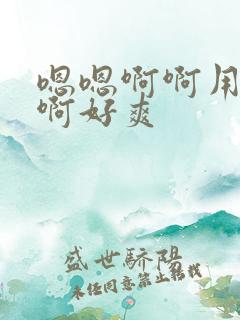 嗯嗯啊啊用
啊好爽
盛世骄阳
未经同意禁止转载